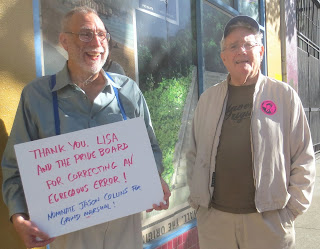 THANK YOU, LISA
AND THE PRIDE BOARD
FOR CORRECTING AN
EGREGIOUS ERROR!
NOMINATE JASON COLLINS FOR
GRAND MARSHAL!